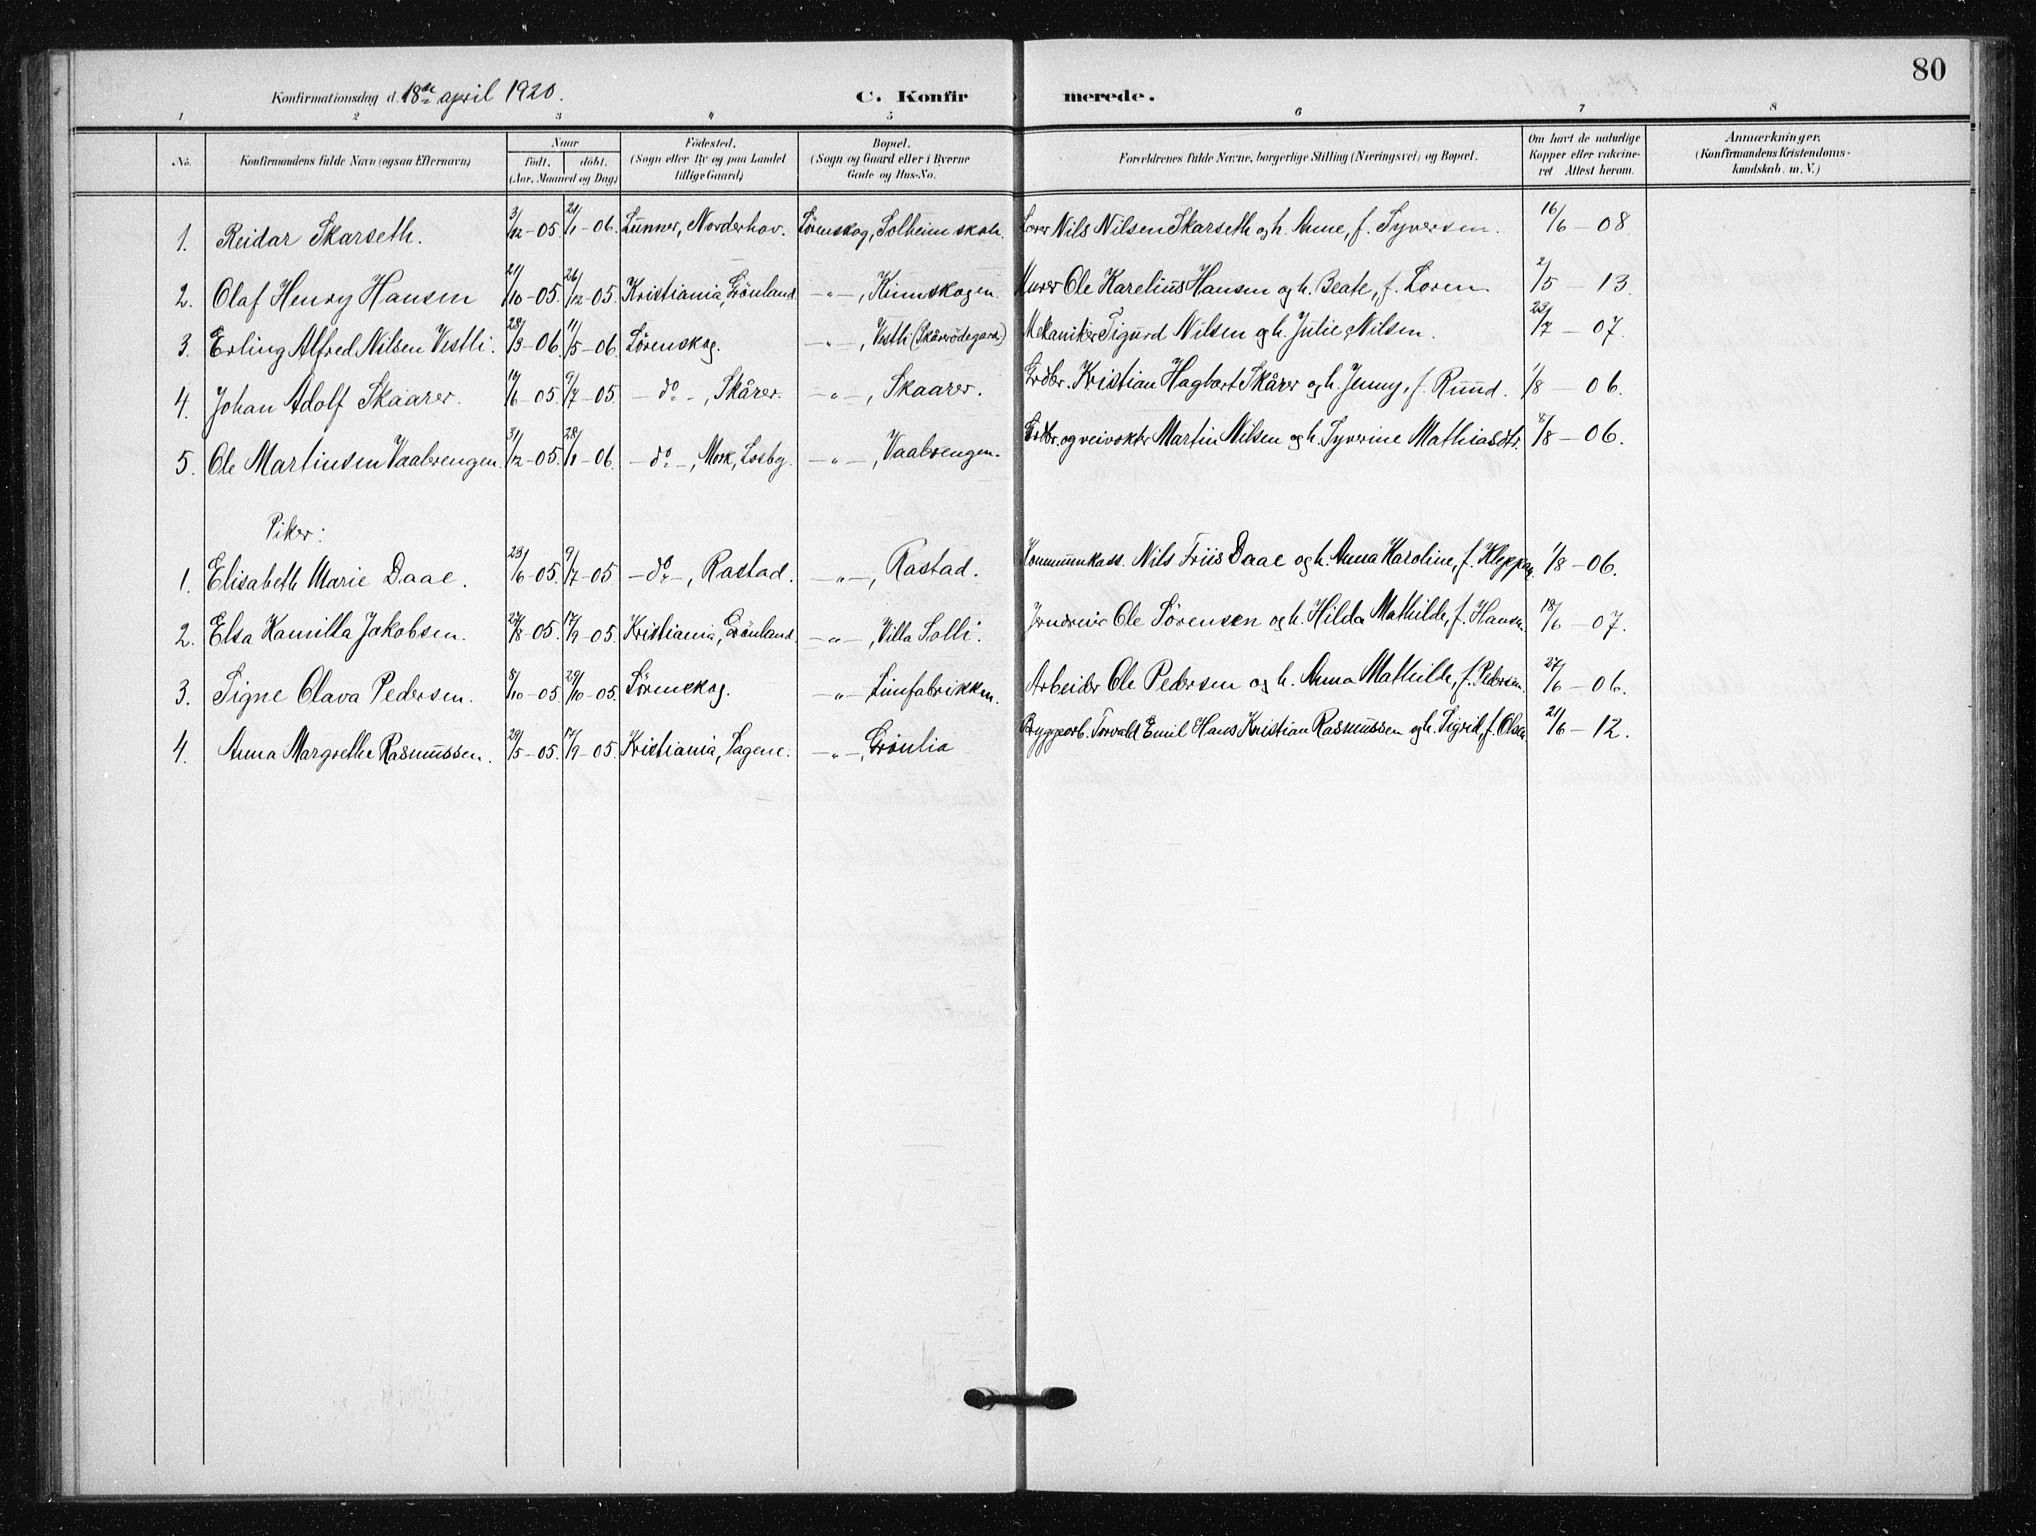 80
Konfirmationsdag d. 18de april 1920.
C. Konfirmerede.
1 2 3 4 5 6 7 8
No. Konfirmandens fulde Navn (ogsaa Efternavn) Naar født. døbt. (Aar, Maaned og Dag) Fødested. (Sogn eller By og paa Landet tillige Gaard) Bopæl. (Sogn og Gaard eller i Byerne Gade og Hus-No. Forældrenes fulde Navne, borgerlige Stilling (Næringsvei) og Bopæl. Om havt de naturlige Kopper eller vakcineret Attest herom. Anmærkninger. (Konfirmandens Kristendomskundskab. m. V.)
1. Reidar Skarseth. 3/12-05. 21/1-06. Lunner, Norderhov. Lørenskog, Solheim skole. Lærer Nils Nilsen Skarseth og h. Anne, f. Syversen. 16/6-08.
2. Olaf Henry Hansen 21/10-05. 26/12-05. Kristiania, Grønland. -"-, Kinnskogen. Murer Ole Karelius Hansen og h. Beate, f. Loren 2/5-13.
3. Erling Alfred Nilsen Vestli. 28/3-06. 11/5-06. Lørenskog. -"-, Vestli (Skårerødegaard) Mekaniker Sigurd Nilsen og h. Julie Nilsen. 23/7-07.
4. Johan Adolf Skaarer. 19/6-05. 9/7-05. -do-, Skårer. -"-, Skaarer. Grdbr. Kristian Hagbart Skårer og h. Jenny, f. Ruud. 1/8-06.
5. Ole Martinsen Vaalerengen. 31/12-05. 28/1-06. -do-, Mork, Losby. -"-, Vaalerengen. Grdbr. og veivokter Martin Nilsen og h. Syverine Mathiasdtr. 8/8-06.
Piker:
1. Elisabeth Marie Daae. 23/6-05. 9/7-05. -do-, Rastad. -"-, Rastad. Kommunekass. Nils Friis Daae og h. Anna Karoline, f. Kleppan. 1/8-06.
2. Elsa Kamilla Jakobsen. 27/8-05. 17/9-05. Kristiania, Grønland. -"-, Villa Solli. Jerndreier Ole Sørensen og h. Hilda Mathilde, f. Hansen. 18/6-07.
3. Signe Olava Pedersen. 8/10-05. 29/10-05. Lørenskog. -"- Limfabrikken. Arbeider Ole Pedersen og h. Anna Mathilde, f. Pedersen. 27/6-06.
4. Anna Margrethe Rasmussen. 29/5-05. 17/9-05. Kristiania, Sagene. -"-, Grønlia Byggearb. Torvald Emil Hans Kristian Rasmussen og h. Sigrid, f. Olsen. 21/6-12.